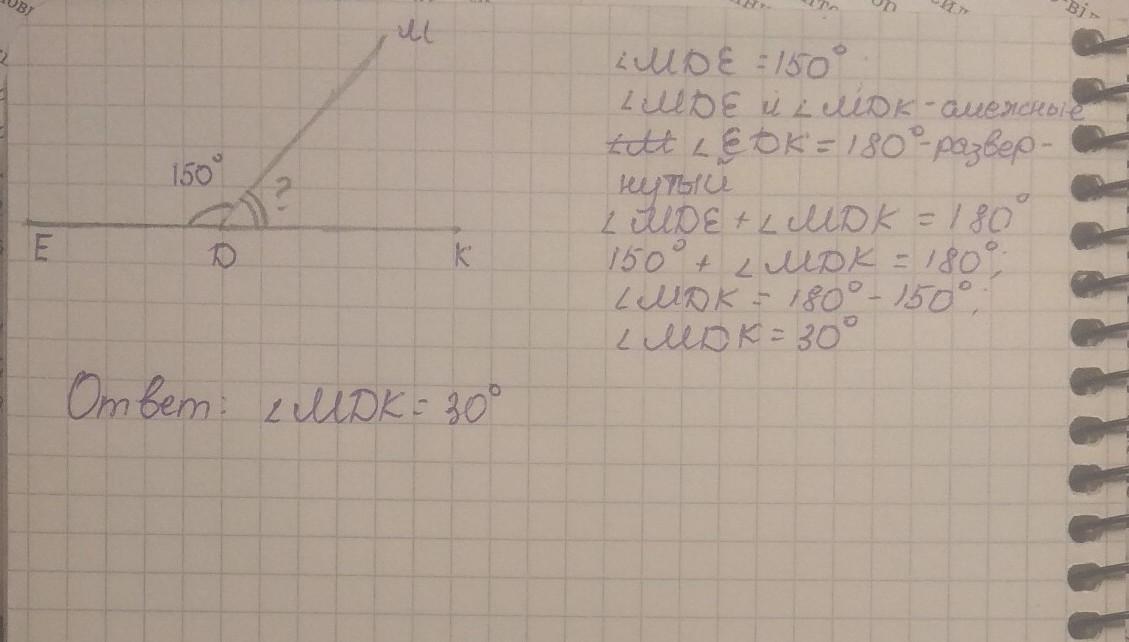 M
150°
?
E
D
K
∠MDE = 150°
∠MDE и ∠MDK - смежные
∠EDK = 180°-развер-
нутый
∠MDE + ∠MDK = 180°
150° + ∠MDK = 180°;
∠MDK = 180° - 150°;
∠MDK = 30°
Ответ: ∠MDK = 30°